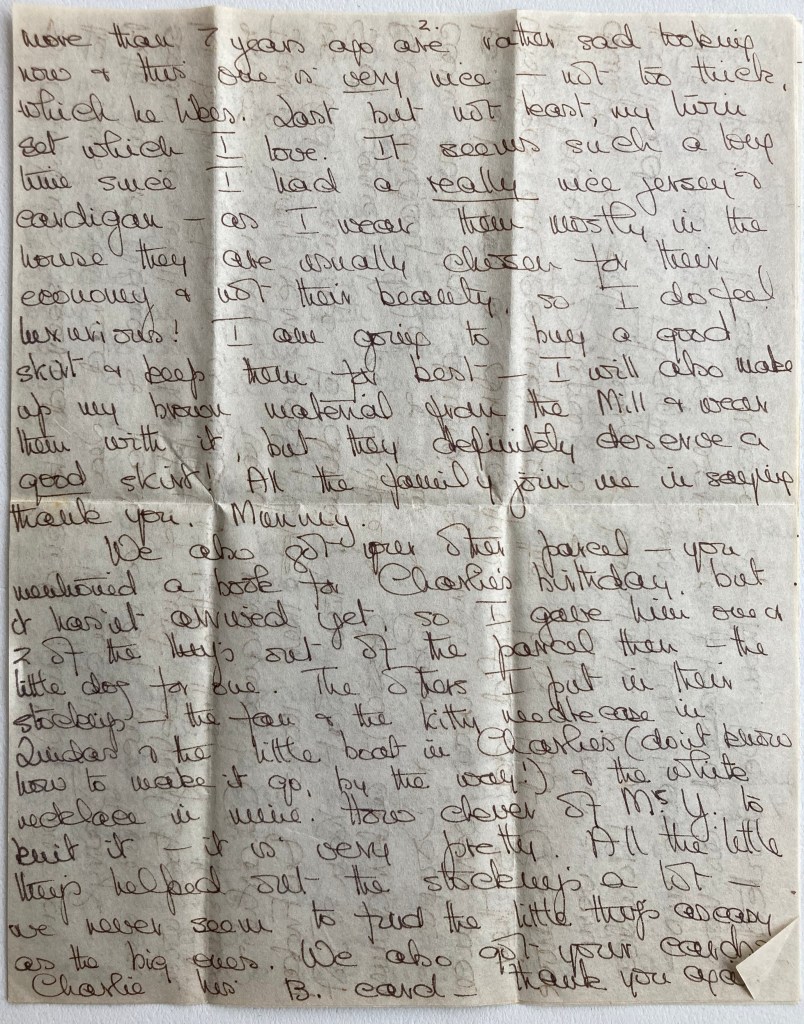 2.
more than 7 years ago are rather sad looking
now & this one is very nice – not too thick,
which he likes. Last but not least, my twin
set which I love. It seems such a long
time since I had a really nice jersey &
cardigan – as I wear them mostly in the
house they are usually chosen for their
economy & not their beauty, so I do feel
luxurious! I am going to buy a good
skirt & keep them for best – I will also make
up my brown material from the Mill & wear
them with it, but they definitely deserve a
good skirt! All the family join me in saying
thank you. Mummy.
We also got your other parcel – you
mentioned a book for Charlie's birthday, but
it hasn't arrived yet, so I gave him one or
2 of the things out of the parcel then – the
little dog for one. The others I put in their
stockings – the fan & the kitty needlecase in
Linda's & the little boat in Charlie's (don't know
how to make it go, by the way!) & the white
necklace in mine. How clever of Mrs Y. to
knit it – it is very pretty. All the little
things helped out the stockings a lot –
we never seem to find the little things as easy
as the big ones. We also got your cards
Charlie his B. card – thank you again